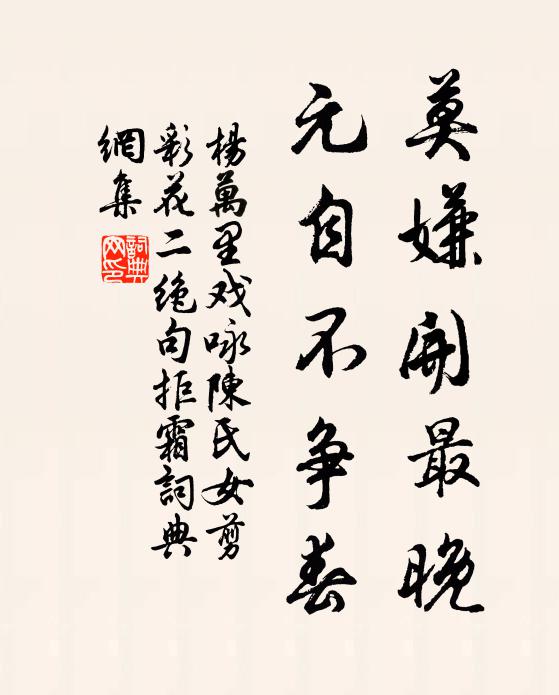 莫嫌開最晚
元自不争春
楊萬里戏咏陳氏女剪
彩花二絶句拒霜詞典
網集
詞典网印